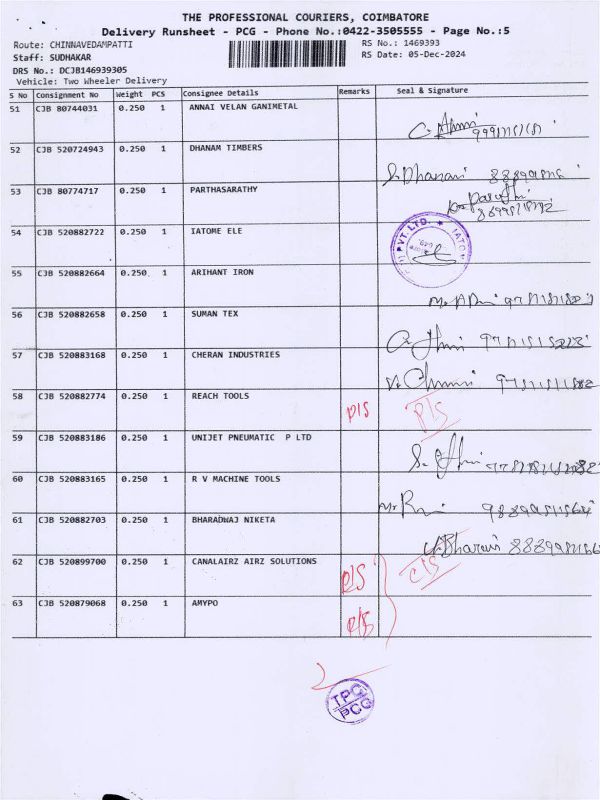 THE PROFESSIONAL COURIERS, COIMBATORE
Delivery Runsheet - PCG - Phone No.:0422-3505555 - Page No.:5
Route: CHINNAVEDAMPATTI RS No.: 1469393
Staff: SUDHAKAR RS Date: 05-Dec-2024
DRS No.: DCJB146939305
Vehicle: Two Wheeler Delivery
S No Consignment No Weight PCS Consignee Details Remarks Seal & Signature
51 CJB 80744031 0.250 1 ANNAI VELAN GANIMETAL
52 CJB 520724943 0.250 1 DHANAM TIMBERS
S. Dharani
53 CJB 80774717 0.250 1 PARTHASARATHY
54 CJB 520882722 0.250 1 IATOME ELE
PVT. LTD. ★ IATOM
55 CJB 520882664 0.250 1 ARIHANT IRON
56 CJB 520882658 0.250 1 SUMAN TEX
57 CJB 520883168 0.250 1 CHERAN INDUSTRIES
58 CJB 520882774 0.250 1 REACH TOOLS
P/S P/S
59 CJB 520883186 0.250 1 UNIJET PNEUMATIC P LTD
60 CJB 520883165 0.250 1 R V MACHINE TOOLS
61 CJB 520882703 0.250 1 BHARADWAJ NIKETA
62 CJB 520899700 0.250 1 CANALAIRZ AIRZ SOLUTIONS
P/S
63 CJB 520879068 0.250 1 AMYPO
P/S
TPC
PCG